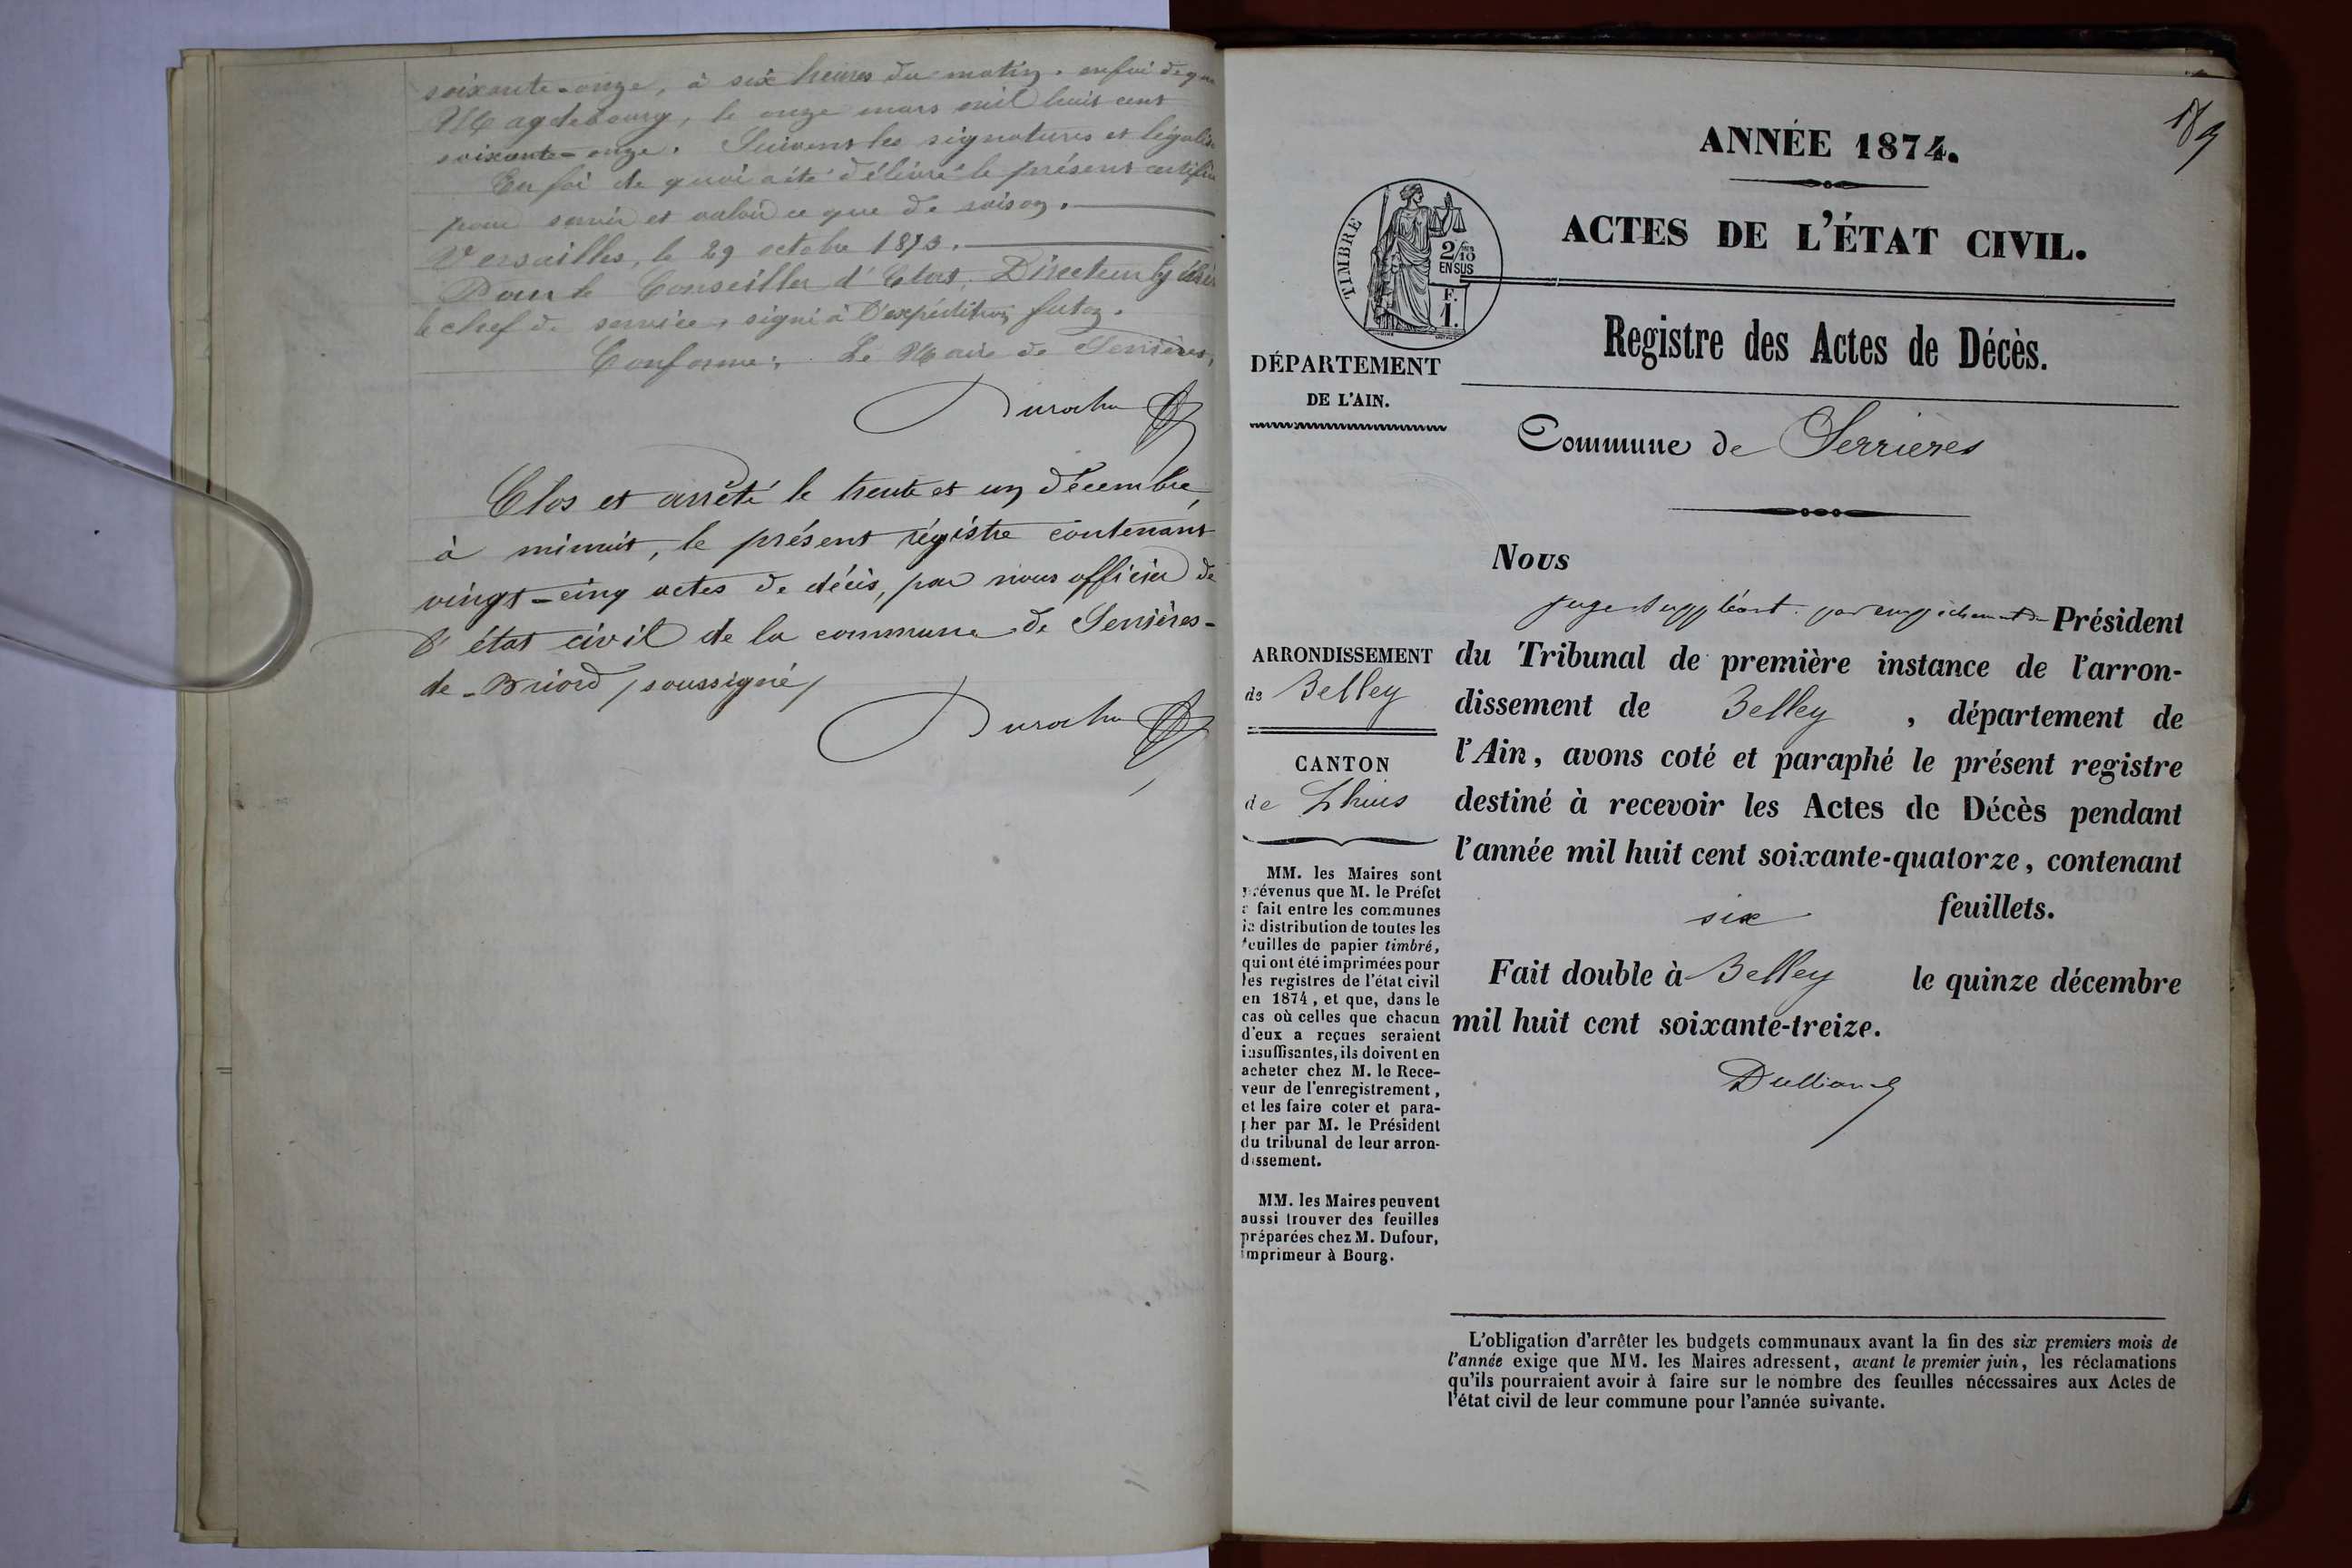 soixante-onze, à six heures du matin. en foi de quoi
Magdebourg, le onze mars mil huit cent
soixante-onze. Suivent les signatures et légalis
En foi de quoi a été délivré le présent certifica
pour servir et valoir ce que de raison.
Versailles, le 29 octobre 1873.
Pour le Conseiller d'Etat, Directeur Génér
le chef de service, signé à l'expédition
Conforme: Le Maire de Serrières,
Clos et arrêté le trente et un décembre
à minuit, le présent régistre contenant
vingt-cinq actes de décès, par nous officier de
l'état civil de la commune de Serrières-
de-Briord, soussigné,
ANNÉE 1874.
ACTES DE L'ÉTAT CIVIL.
TIMBRE
2/10
EN SUS
F.
1.
Registre des Actes de Décès.
DÉPARTEMENT
DE L'AIN.
Commune de Serrieres
Nous
juge suppléant par empêchement du Président
du Tribunal de première instance de l'arron-
dissement de Belley, département de
l'Ain, avons coté et paraphé le présent registre
destiné à recevoir les Actes de Décès pendant
l'année mil huit cent soixante-quatorze, contenant
six feuillets.
Fait double à Belley le quinze décembre
mil huit cent soixante-treize.
ARRONDISSEMENT
de Belley
CANTON
de Lhuis
MM. les Maires sont
prévenus que M. le Préfet
a fait entre les communes
la distribution de toutes les
feuilles de papier timbré,
qui ont été imprimées pour
les registres de l'état civil
en 1874, et que, dans le
cas où celles que chacun
d'eux a reçues seraient
insuffisantes, ils doivent en
acheter chez M. le Rece-
veur de l'enregistrement,
et les faire coter et para-
pher par M. le Président
du tribunal de leur arron-
dissement.
MM. les Maires peuvent
aussi trouver des feuilles
préparées chez M. Dufour,
imprimeur à Bourg.
L'obligation d'arrêter les budgets communaux avant la fin des six premiers mois de
l'année exige que MM. les Maires adressent, avant le premier juin, les réclamations
qu'ils pourraient avoir à faire sur le nombre des feuilles nécessaires aux Actes de
l'état civil de leur commune pour l'année suivante.